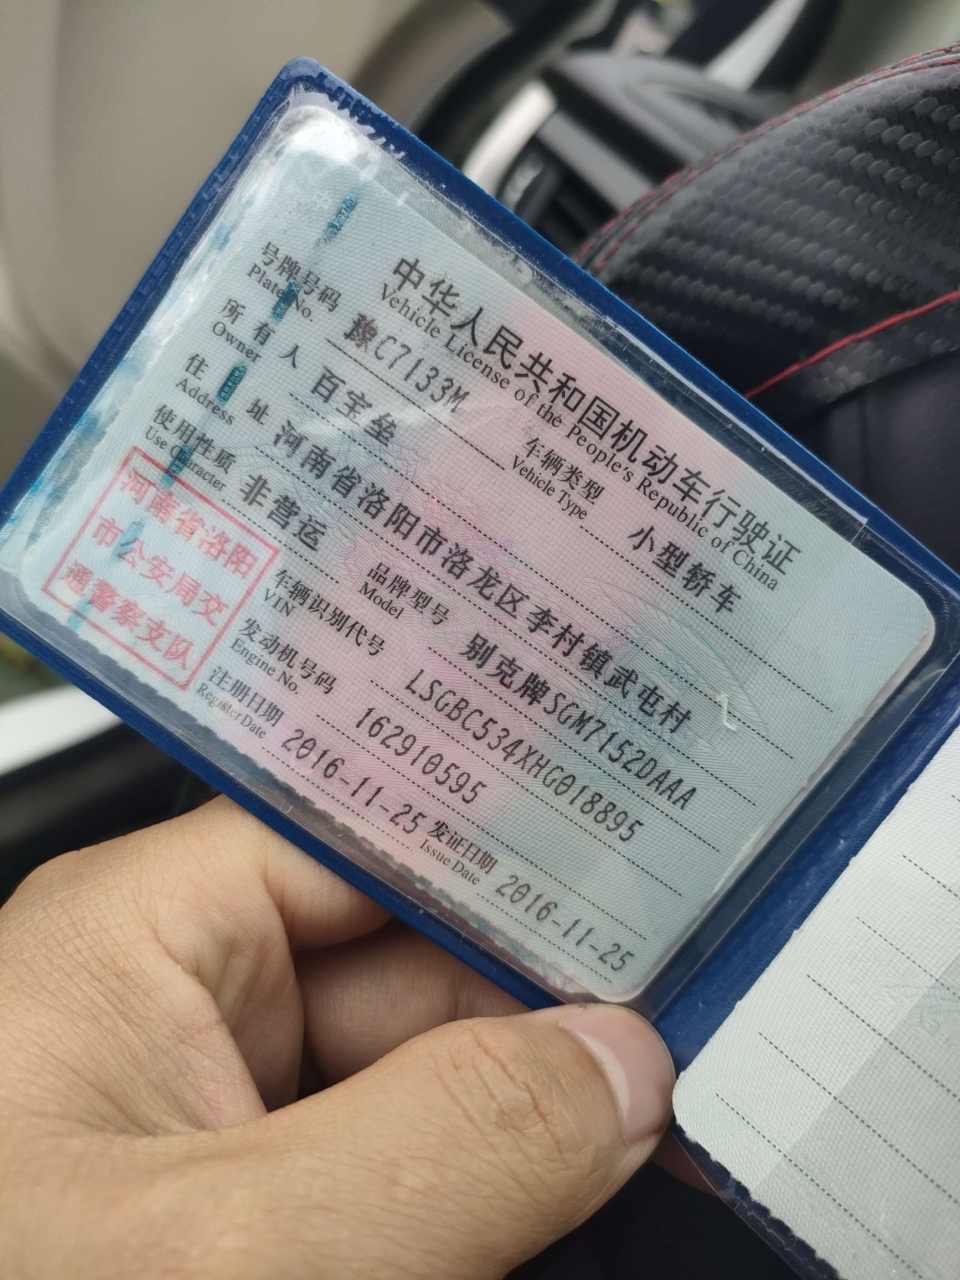 中华人民共和国机动车行驶证
Vehicle License of the People's Republic of China
号牌号码 豫C7133M 车辆类型 小型轿车
Plate No. Vehicle Type
所有人 百宝垒
Owner
住址 河南省洛阳市洛龙区李村镇武屯村
Address
使用性质 非营运 品牌型号 别克牌SGM7152DAAA
Use Character Model
河南省洛阳
市公安局交
通警察支队
车辆识别代号 LSGBC534XHG018895
VIN
发动机号码 162910595
Engine No.
注册日期 2016-11-25 发证日期 2016-11-25
Register Date Issue Date